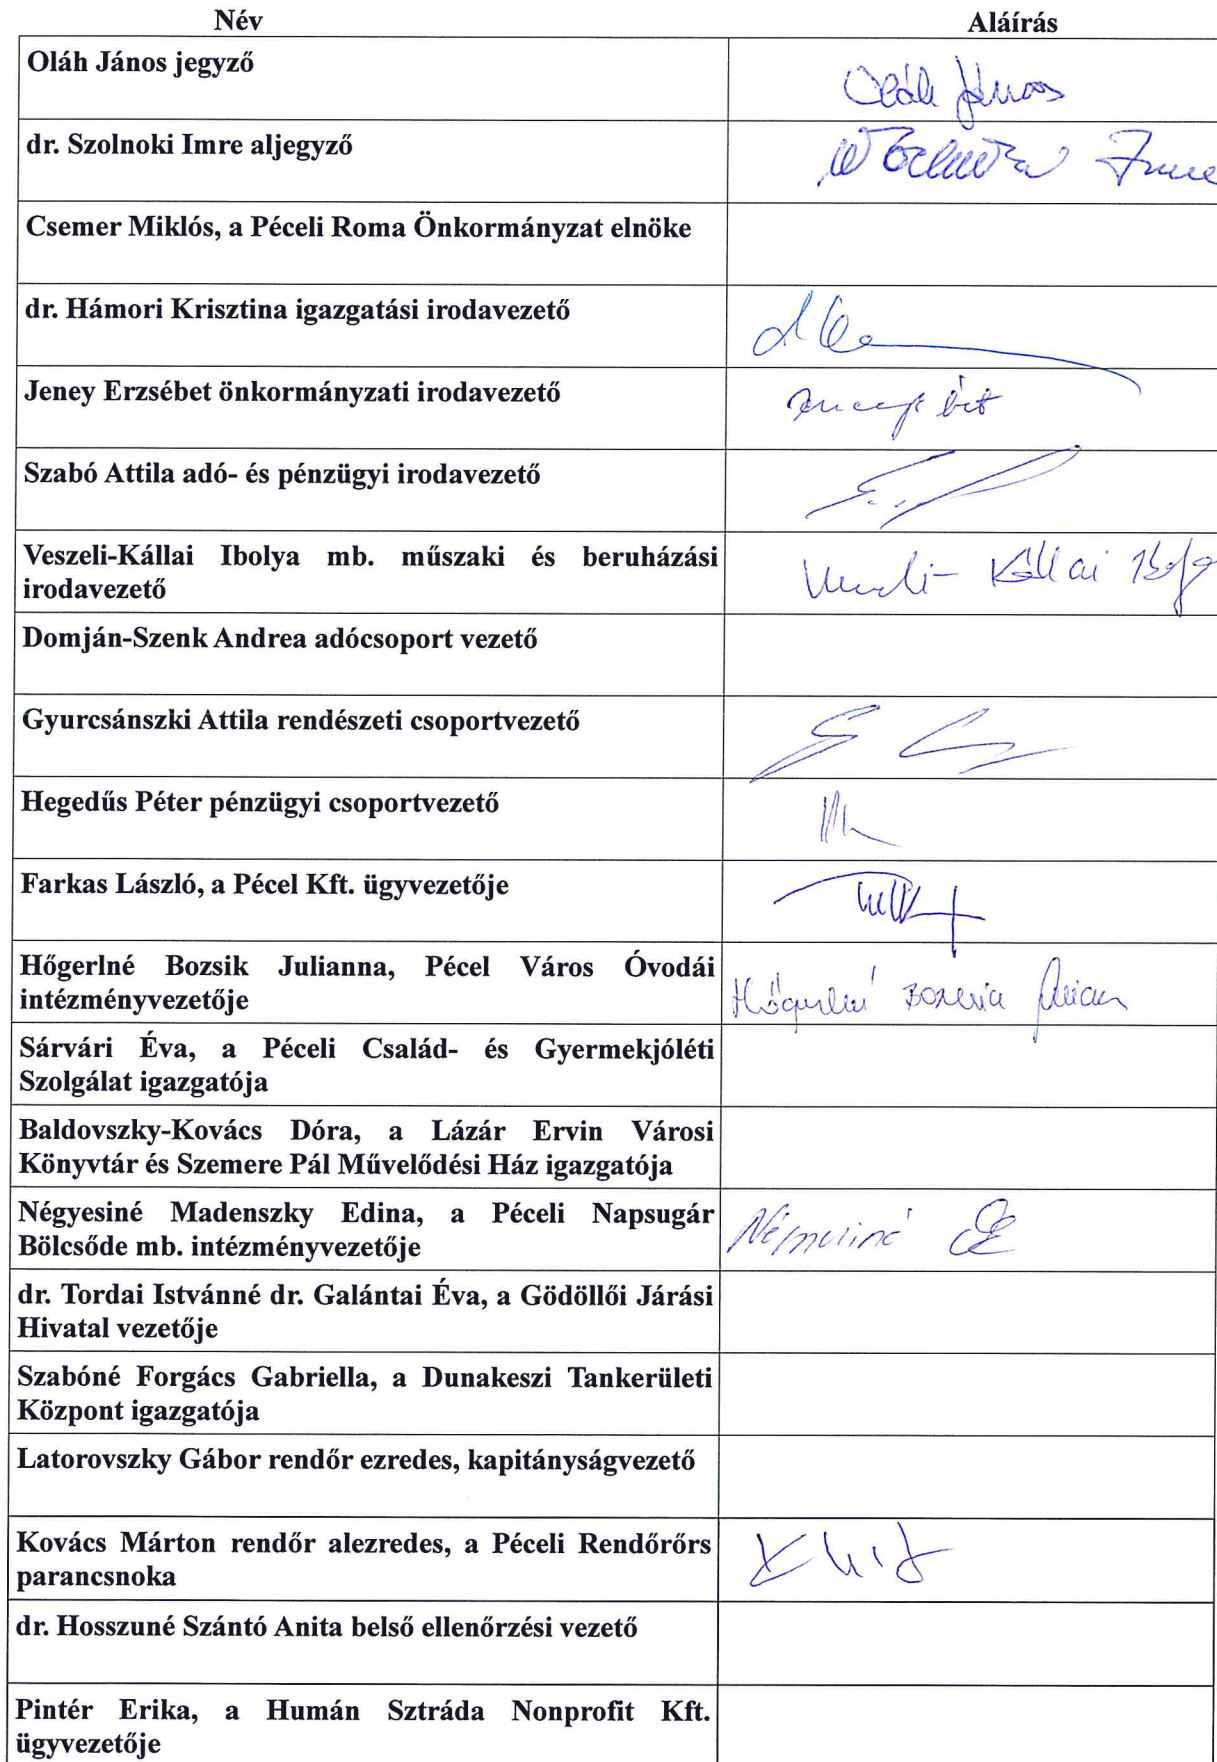 Név Aláírás
Oláh János jegyző Oláh János
dr. Szolnoki Imre aljegyző Imre
Csemer Miklós, a Péceli Roma Önkormányzat elnöke
dr. Hámori Krisztina igazgatási irodavezető
Jeney Erzsébet önkormányzati irodavezető
Szabó Attila adó- és pénzügyi irodavezető
Veszeli-Kállai Ibolya mb. műszaki és beruházási Kállai
irodavezető
Domján-Szenk Andrea adócsoport vezető
Gyurcsánszki Attila rendészeti csoportvezető
Hegedűs Péter pénzügyi csoportvezető
Farkas László, a Pécel Kft. ügyvezetője
Hőgerlné Bozsik Julianna, Pécel Város Óvodái
intézményvezetője
Sárvári Éva, a Péceli Család- és Gyermekjóléti
Szolgálat igazgatója
Baldovszky-Kovács Dóra, a Lázár Ervin Városi
Könyvtár és Szemere Pál Művelődési Ház igazgatója
Négyesiné Madenszky Edina, a Péceli Napsugár
Bölcsőde mb. intézményvezetője
dr. Tordai Istvánné dr. Galántai Éva, a Gödöllői Járási
Hivatal vezetője
Szabóné Forgács Gabriella, a Dunakeszi Tankerületi
Központ igazgatója
Latorovszky Gábor rendőr ezredes, kapitányságvezető
Kovács Márton rendőr alezredes, a Péceli Rendőrőrs
parancsnoka
dr. Hosszuné Szántó Anita belső ellenőrzési vezető
Pintér Erika, a Humán Sztráda Nonprofit Kft.
ügyvezetője